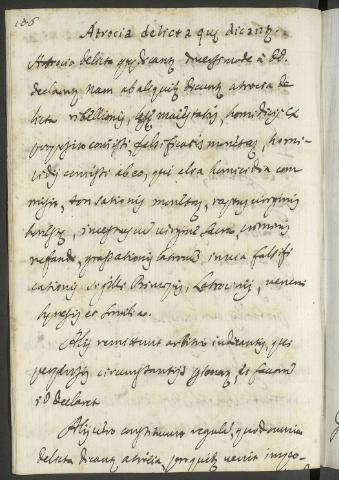 186
Atrocia delicta quę dicantur
Atrocia delicta quę dicantur diversimode a DD.
declarant nam ab aliquib dicunt atrocia de
licta rebellionis, lesę maiestatis, homicidii ex
proposito commissi, falsificationis monetarum, homi-
cidii commissi ab eo, qui alia homicidia com
misit, tonsationis monetarum, raptus virginis
, incestus cum virgine sacra, criminis
nefandi, grassationis latronum in via falsifi
cationis sigilli Principis, Latrocinii, veneni
hęresis et similia.
Alii remittunt arbitrio iudicantis, qui
circumstantiis personarum, et
id declaret
Alii vero constituunt regulam, quod omnia
delicta dicantur atrocia, pro quibus venit impo-